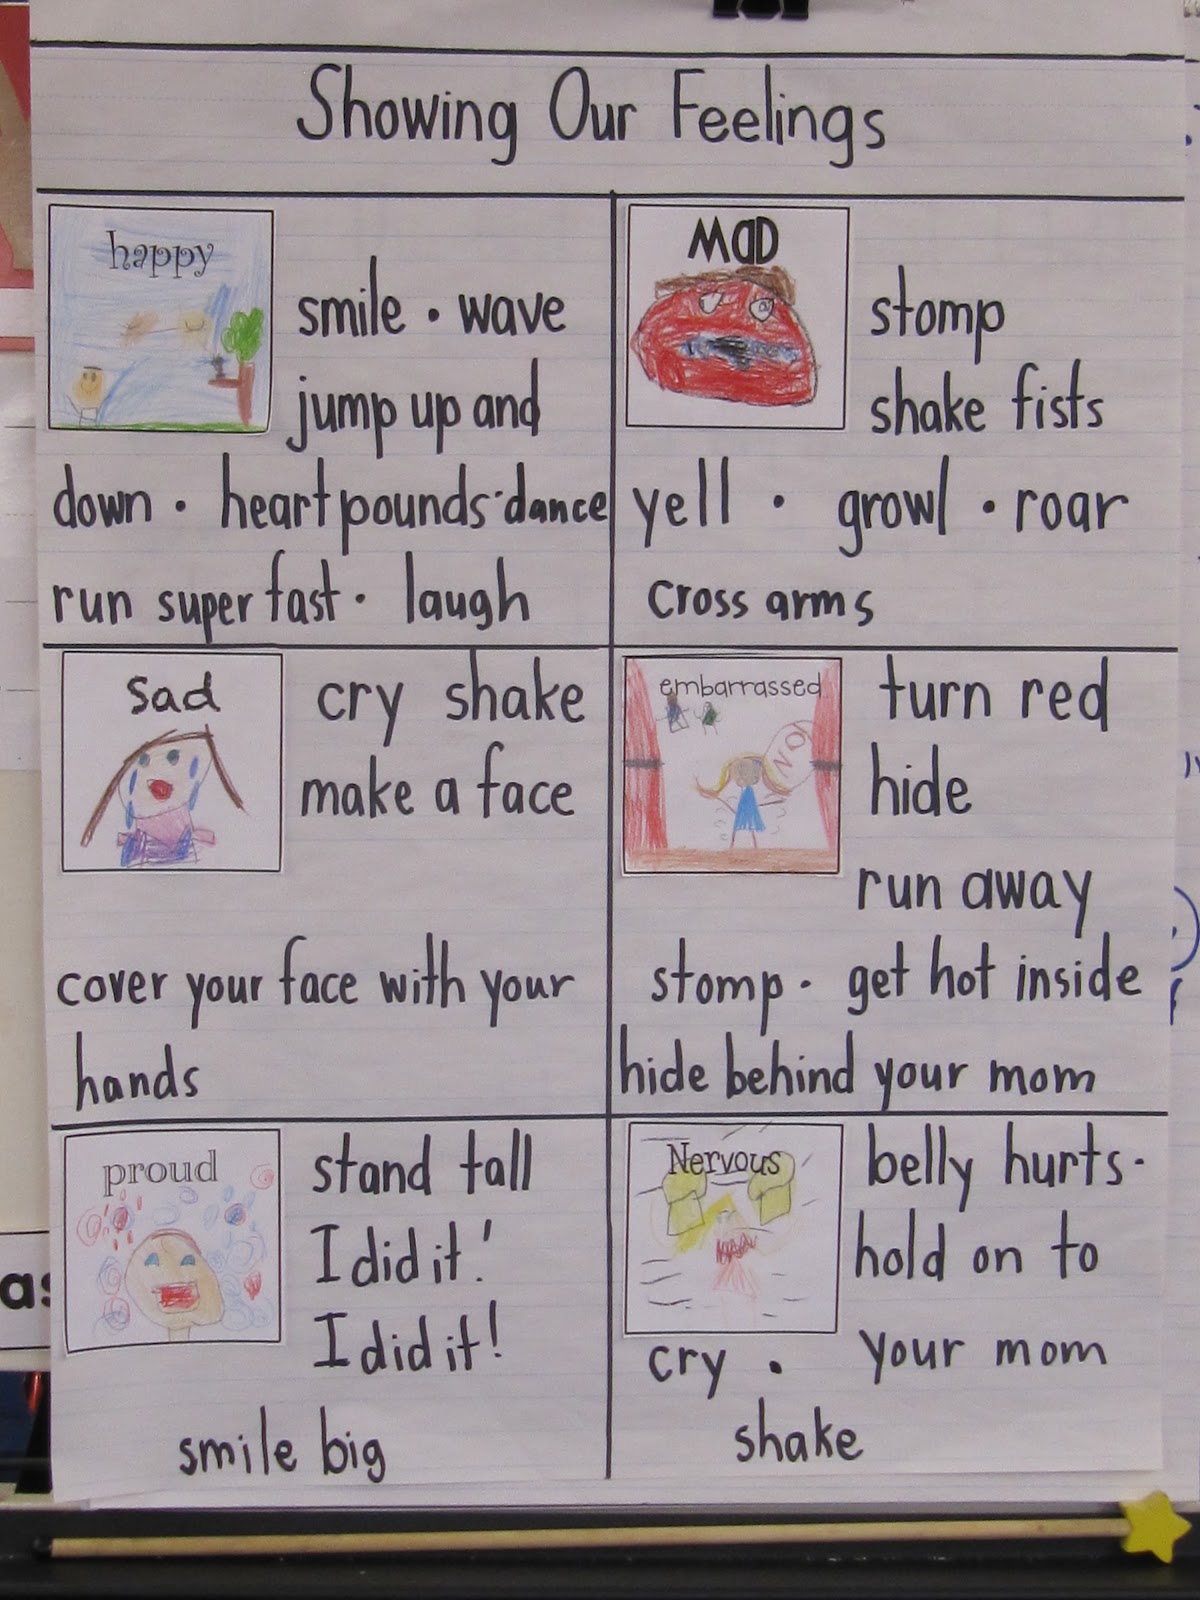 Showing Our Feelings
happy
smile • wave
jump up and
down • heart pounds • dance
run super fast • laugh
MaD
stomp
shake fists
yell • growl • roar
cross arms
sad
cry shake
make a face
cover your face with your
hands
embarrassed
NO!
turn red
hide
run away
stomp • get hot inside
hide behind your mom
proud
stand tall
I did it!
I did it!
smile big
Nervous
belly hurts •
hold on to
your mom
cry •
shake
as